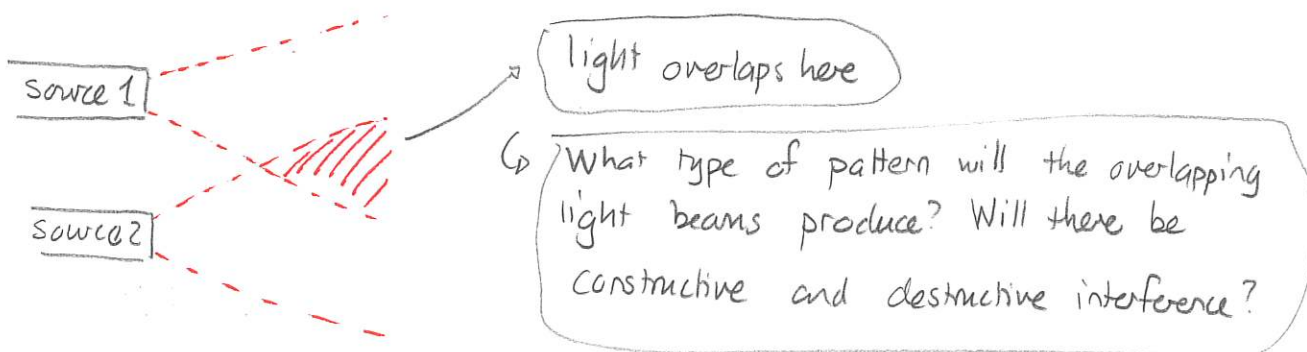 source 1
source 2
light overlaps here
What type of pattern will the overlapping
light beams produce? Will there be
constructive and destructive interference?